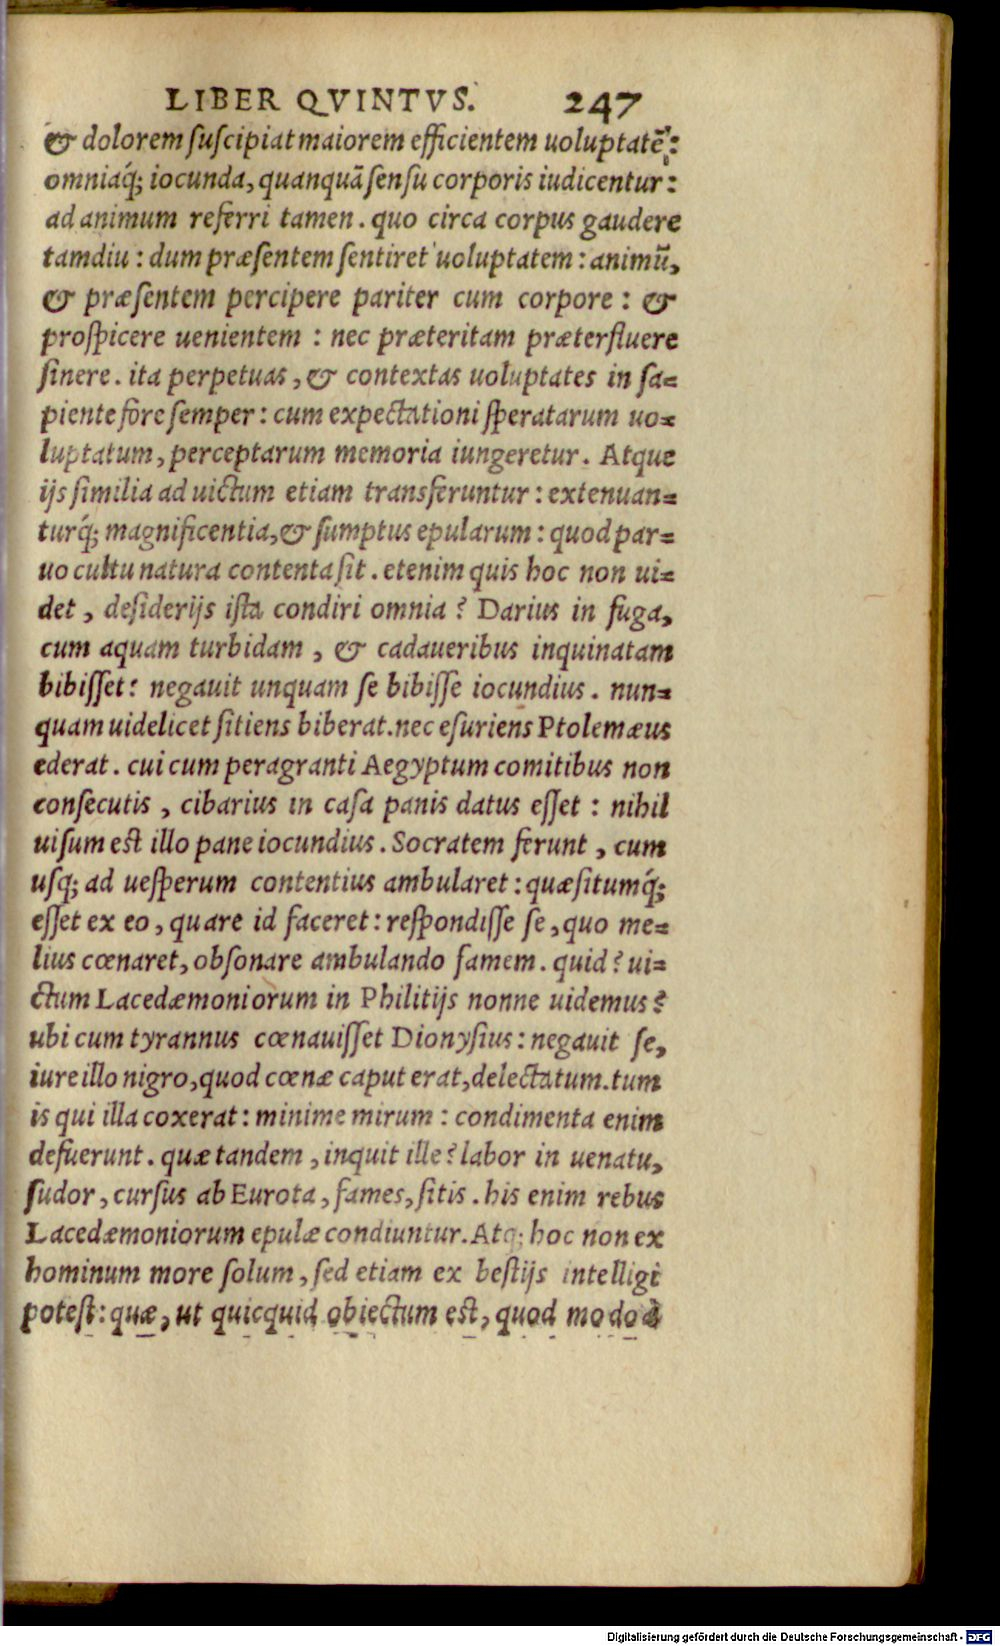 LIBER QVINTVS. 247
& dolorem suscipiat maiorem efficientem uoluptatẽ:
omniaq́; iocunda, quanquã sensu corporis iudicentur:
ad animum referri tamen. quo circa corpus gaudere
tamdiu: dum præsentem sentiret uoluptatem: animũ,
& præsentem percipere pariter cum corpore: &
prospicere uenientem: nec præteritam præterfluere
sinere. ita perpetuas, & contextas uoluptates in sa=
piente fore semper: cum expectationi speratarum uo=
luptatum, perceptarum memoria iungeretur. Atque
ijs similia ad uictum etiam transferuntur: extenuan=
turq́; magnificentia, & sumptus epularum: quod par=
uo cultu natura contenta sit. etenim quis hoc non ui=
det, desiderijs ista condiri omnia? Darius in fuga,
cum aquam turbidam, & cadaueribus inquinatam
bibisset: negauit unquam se bibisse iocundius. nun=
quam uidelicet sitiens biberat. nec esuriens Ptolemæus
ederat. cui cum peragranti Aegyptum comitibus non
consecutis, cibarius in casa panis datus esset: nihil
uisum est illo pane iocundius. Socratem ferunt, cum
usq; ad uesperum contentius ambularet: quæsitumq́;
esset ex eo, quare id faceret: respondisse se, quo me=
lius cœnaret, obsonare ambulando famem. quid? ui=
ctum Lacedæmoniorum in Philitijs nonne uidemus?
ubi cum tyrannus cœnauisset Dionysius: negauit se,
iure illo nigro, quod cœnæ caput erat, delectatum. tum
is qui illa coxerat: minime mirum: condimenta enim
defuerunt. quæ tandem, inquit ille? labor in uenatu,
sudor, cursus ab Eurota, fames, sitis. his enim rebus
Lacedæmoniorum epulæ condiuntur. Atq; hoc non ex
hominum more solum, sed etiam ex bestijs intelligi
potest: quæ, ut quicquid obiectum est, quod modo à
Digitalisierung gefördert durch die Deutsche Forschungsgemeinschaft - DFG